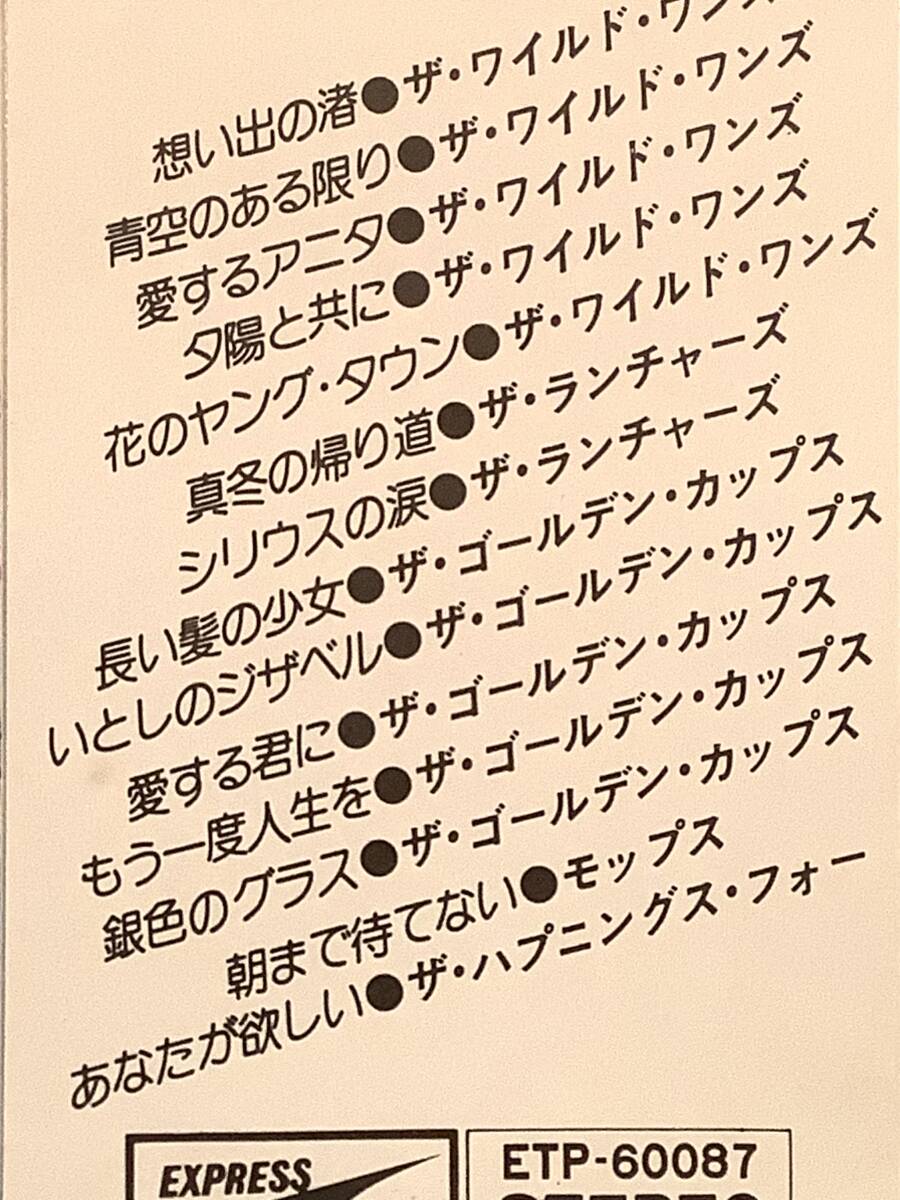 想い出の渚●ザ・ワイルド・ワンズ
青空のある限り●ザ・ワイルド・ワンズ
愛するアニタ●ザ・ワイルド・ワンズ
夕陽と共に●ザ・ワイルド・ワンズ
花のヤング・タウン●ザ・ワイルド・ワンズ
真冬の帰り道●ザ・ランチャーズ
シリウスの涙●ザ・ランチャーズ
長い髪の少女●ザ・ゴールデン・カップス
いとしのジザベル●ザ・ゴールデン・カップス
愛する君に●ザ・ゴールデン・カップス
もう一度人生を●ザ・ゴールデン・カップス
銀色のグラス●ザ・ゴールデン・カップス
朝まで待てない●モップス
あなたが欲しい●ザ・ハプニングス・フォー
EXPRESS
ETP-60087
STEREO